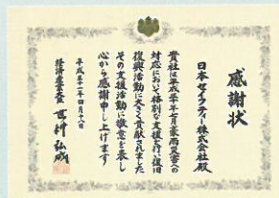 感謝状
日本セイフティー株式会社殿
貴社は平成三十年七月豪雨災害への
対応において格別な支援を行い復旧
復興活動に大きく貢献されました
その支援活動に敬意を表し
心から感謝申し上げます
平成三十一年四月十八日
経済産業大臣